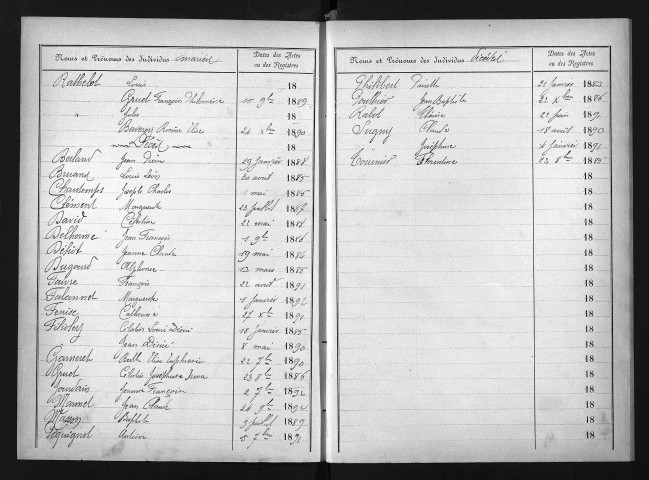 Noms et Prénoms des Individus mariés
Dates des Actes
ou des Registres
Rathelot Louis 18
Gruet François Philomène 15 9bre 1889
" Jules 18
Baverey Rosine Elise 26 Xbre 1890
Décès 18
Berland Jean Pierre 29 Janvier 1888
Bruand Louis Léon 20 août 1885
Chantemps Joseph Charles 1 mai 1885
Clément Marguerite 23 Juillet 1887
David Célestine 22 mai 1888
Delhorme Jean François 1 9bre 1886
Jeanne Claude 19 mai 1884
Dugourd Alphonse 13 mars 1885
Faivre François 22 avril 1891
Falconnet Marguerite 1 Janvier 1892
Fenise Catherine 27 Xbre 1891
Louis Désiré 18 Janvier 1885
Jean Désiré 8 mai 1890
Garneret Elise Euphrasie 22 7bre 1890
Gruet Josephine 23 8bre 1886
Jourdain Jeanne Françoise 2 7bre 1892
Mammet Jean Claude 26 9bre 1892
Masson Baptiste 9 Juillet 1889
Péquignet Antoine 5 7bre 1891
Noms et Prénoms des Individus Décédés
Dates des Actes
ou des Registres
Philibert Pierrette 21 Janvier 1883
Ponthier Jean Baptiste 22 Xbre 1886
Rabet 21 Juin 1891
Sugny Claude 18 avril 1890
Joséphine 4 Janvier 1891
Tournier Florentine 23 8bre 1885
18
18
18
18
18
18
18
18
18
18
18
18
18
18
18
18
18